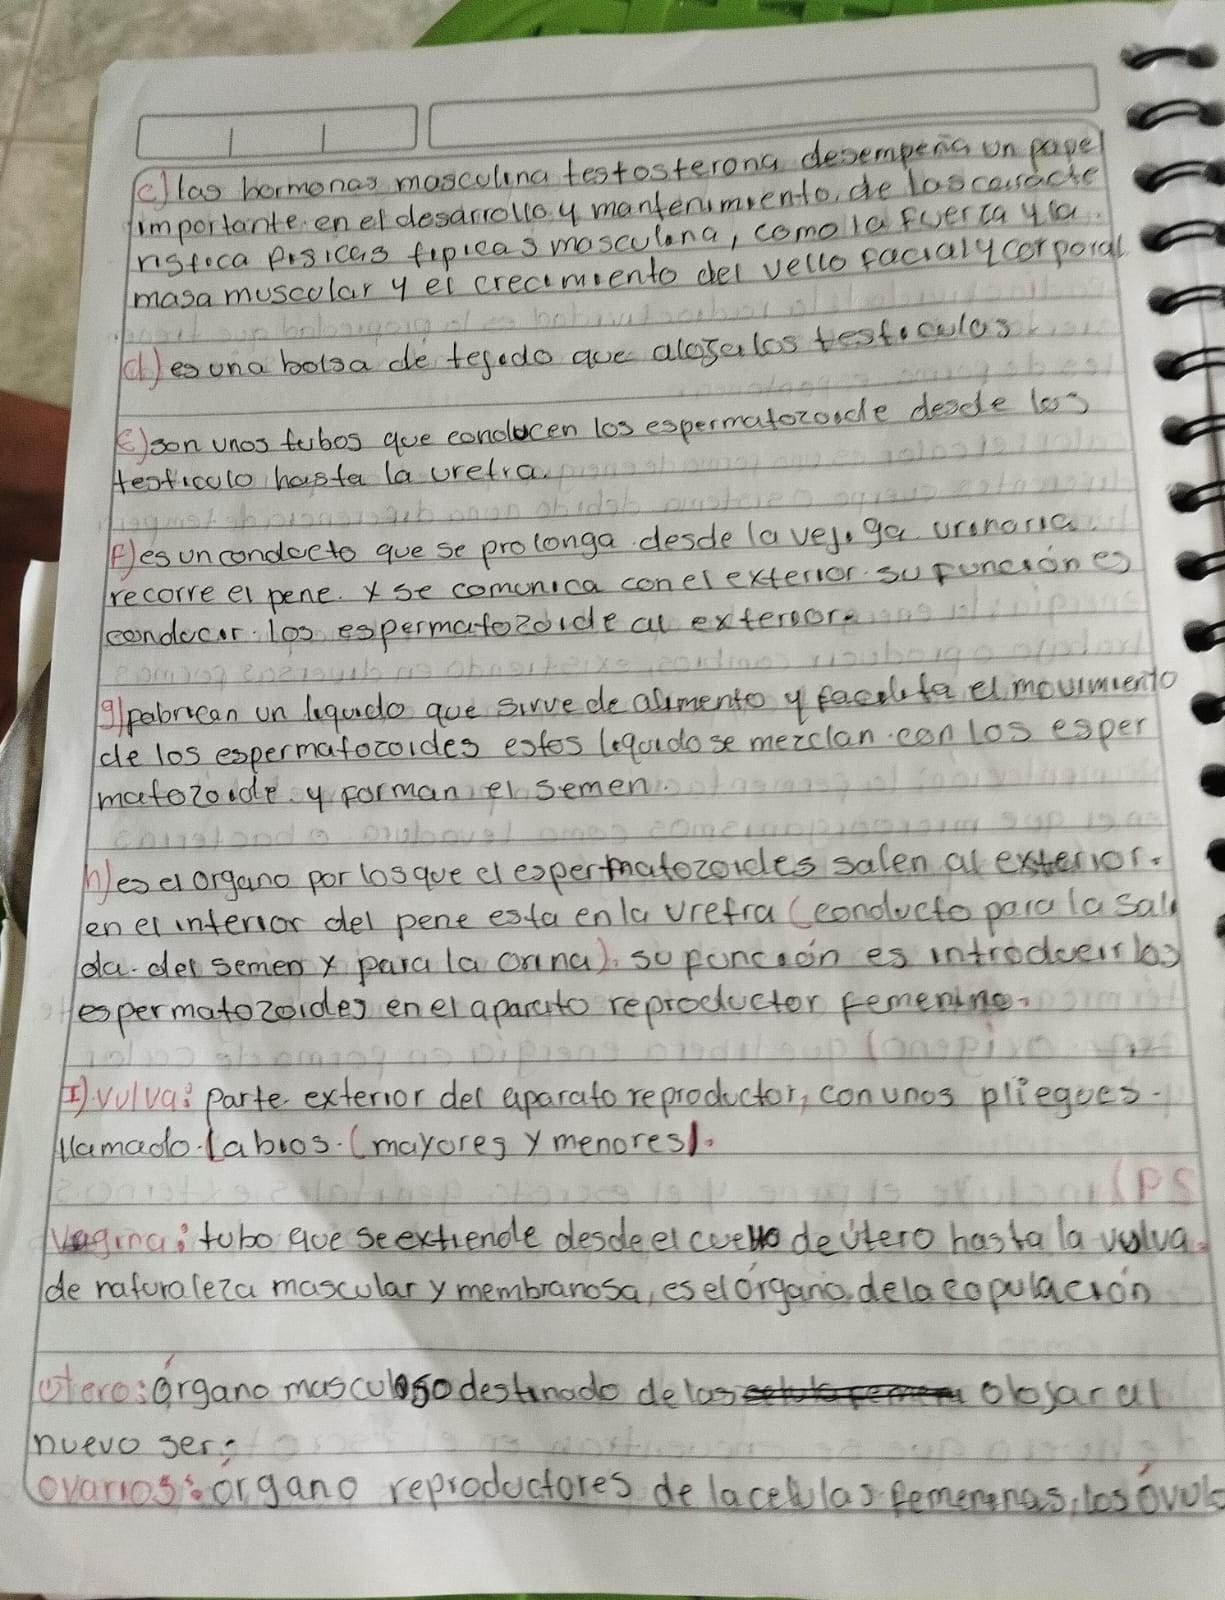 c) las hormonas masculina testosterona desempeña un papel
importante en el desarrollo y mantenimiento, de las caracte
ristica fisicas tipicas masculina, como la fuerza y la
masa muscular y el crecimiento del vello facial y corporal
d) es una bolsa de tejido que aloja los testiculos
E) son unos tubos que conducen los espermatozoide desde los
testiculo hasta la uretra.
F) es un conducto que se prolonga desde la vejiga urinaria
recorre el pene. y se comunica con el exterior. su función es
conducir los espermatozoide al exterior.
g) fabrican un liquido que sirve de alimento y facilita el movimiento
de los espermatozoides estos liquido se mezclan con los esper
matozoide y forman el semen.
h) es el organo por los que el espermatozoides salen al exterior.
en el interior del pene esta en la uretra (conducto para la sali
da del semen y para la orina). su función es introducir los
espermatozoides en el aparato reproductor femenino.
I) vulva: parte exterior del aparato reproductor, con unos pliegues
llamado labios (mayores y menores).
vagina: tubo que se extiende desde el cuello de útero hasta la vulva.
de naturaleza mascular y membranosa, es el órgano de la copulación
utero: órgano musculoso destinado de las olojar al
nuevo ser.
ovarios: órgano reproductores de la celulas femeninas, los óvulo